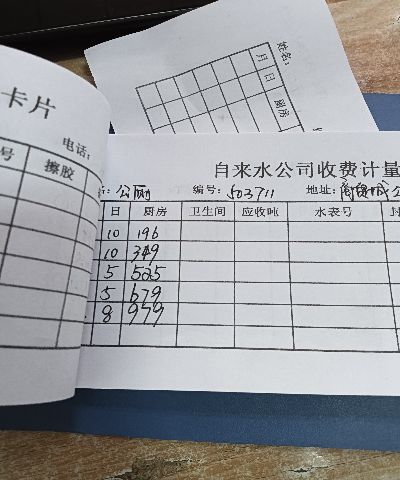 姓名:
月 日 厨房
卡片
电话:
号 擦胶
自来水公司收费计量
公厕 编号: 503711 地址:
日 厨房 卫生间 应收吨 水表号
10 196
10 349
5 525
5 679
8 979